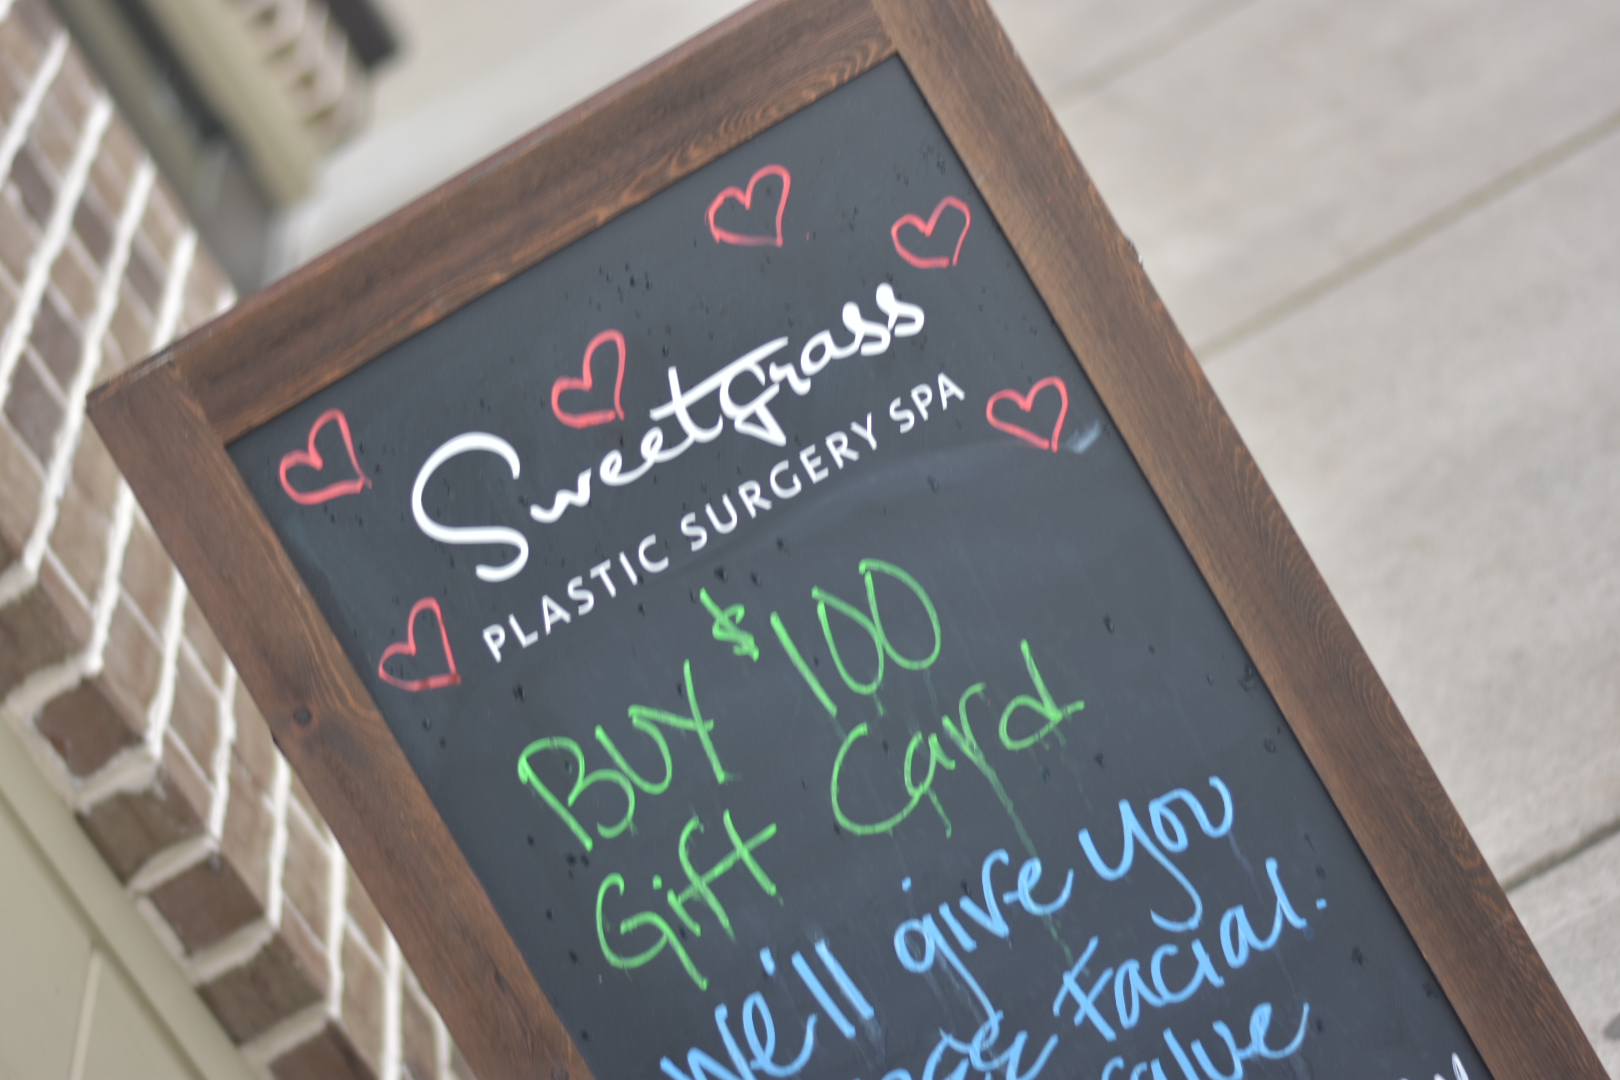 Sweetgrass
PLASTIC SURGERY SPA
BUY $100
Gift Card
We'll give you
Facial.